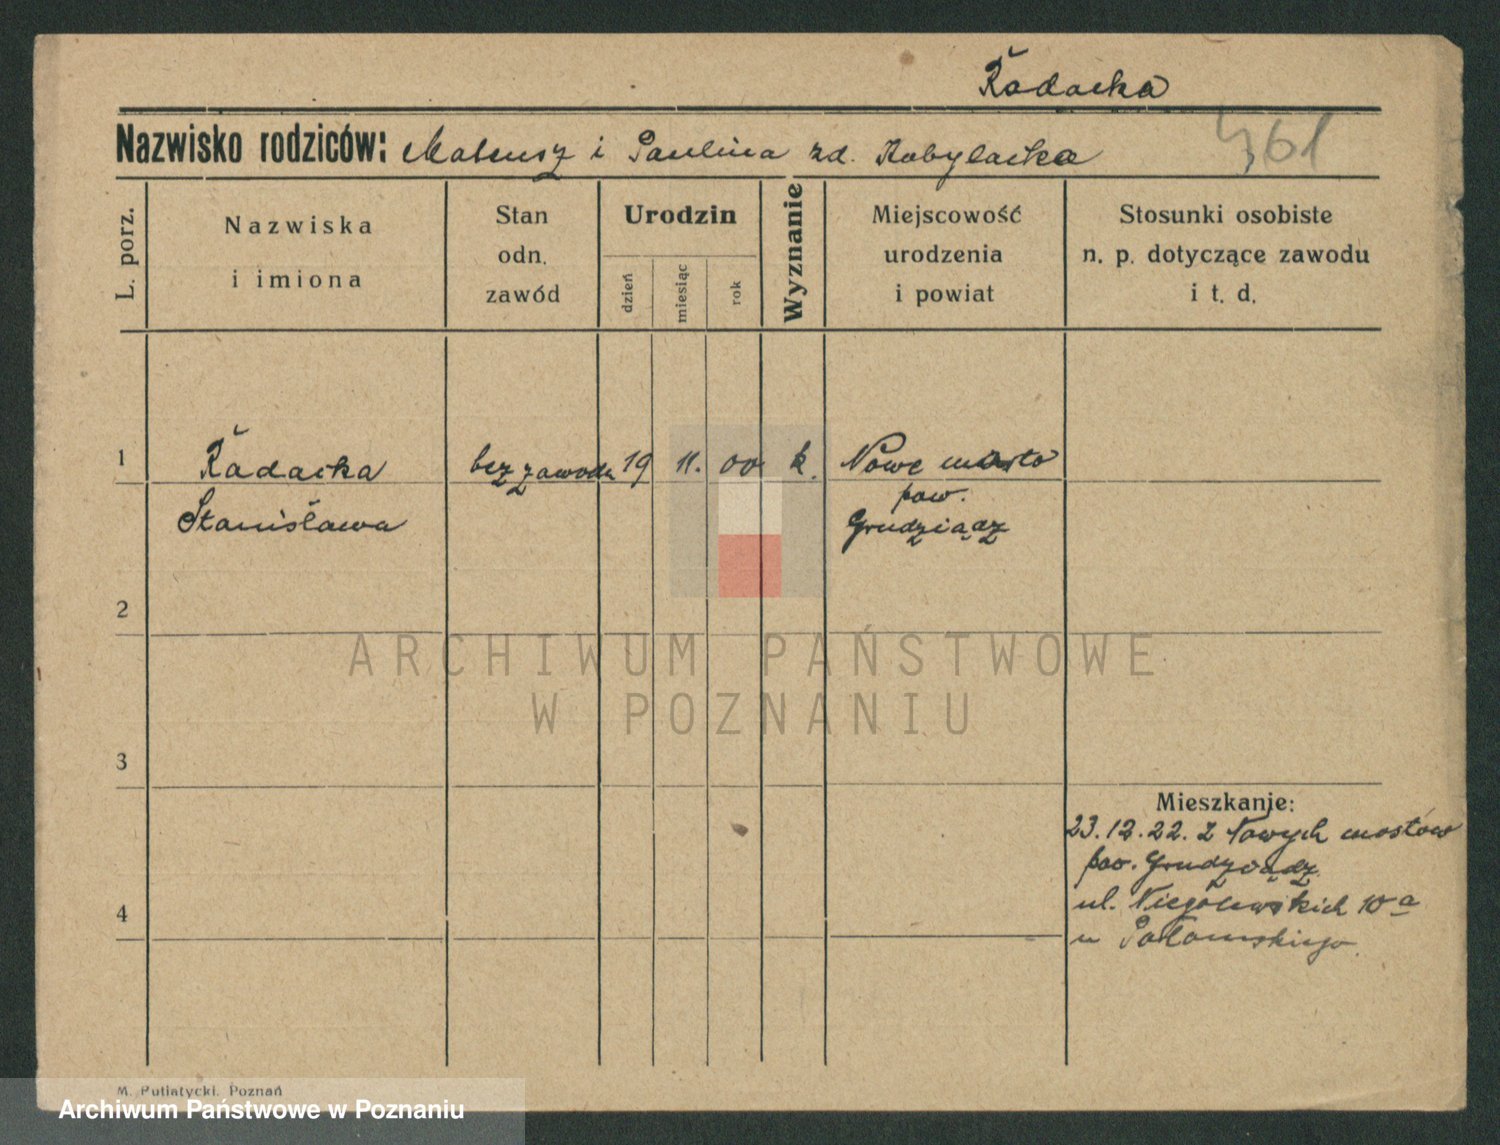 Radacka
Nazwisko rodziców: Mateusz i Paulina zd. Kobylacka
361
L. porz.
Nazwiska
i imiona
Stan
odn.
zawód
Urodzin
dzień
miesiąc
rok
Wyznanie
Miejscowość
urodzenia
i powiat
Stosunki osobiste
n. p. dotyczące zawodu
i t. d.
1
Radacka
Stanisława
bez zawodu
19 11. 00 k.
Nowe miasto
pow.
Grudziądz
2
3
4
Mieszkanje:
23.12.22. z Nowych mostów
pow. Grudziądz.
ul. Niegolewskich 10a
u
ARCHIWUM PAŃSTWOWE
W POZNANIU
M. Putiatycki. Poznań
Archiwum Państwowe w Poznaniu